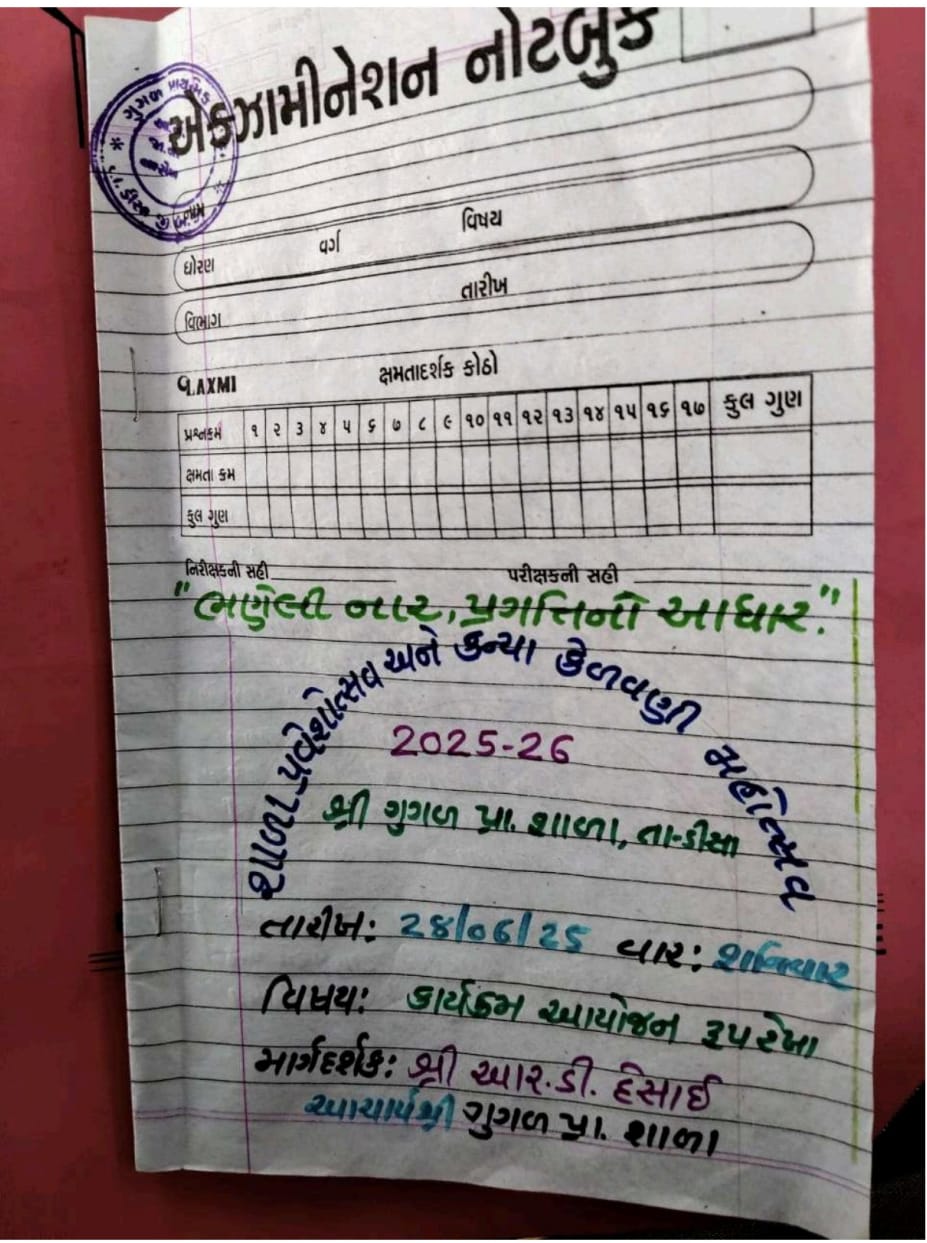 એક્ઝામીનેશન નોટબુક
ગુગળ પ્રાથમિક
ધોરણ વર્ગ વિષય
વિભાગ તારીખ
LAXMI ક્ષમતાદર્શક કોઠો
પ્રશ્નક્રમ ૧ ૨ ૩ ૪ ૫ ૬ ૭ ૮ ૯ ૧૦ ૧૧ ૧૨ ૧૩ ૧૪ ૧૫ ૧૬ ૧૭ કુલ ગુણ
ક્ષમતા ક્રમ
કુલ ગુણ
નિરીક્ષકની સહી પરીક્ષકની સહી
"ભણેલી નાર, પ્રગતિનો આધાર."
શાળા પ્રવેશોત્સવ અને કન્યા કેળવણી મહોત્સવ
2025-26
શ્રી ગુગળ પ્રા. શાળા, તા-ડીસા
તારીખ: 28/06/25 વાર: શનિવાર
વિષય: કાર્યક્રમ આયોજન રૂપરેખા
માર્ગદર્શક: શ્રી આર.ડી. દેસાઈ
આચાર્યશ્રી ગુગળ પ્રા. શાળા